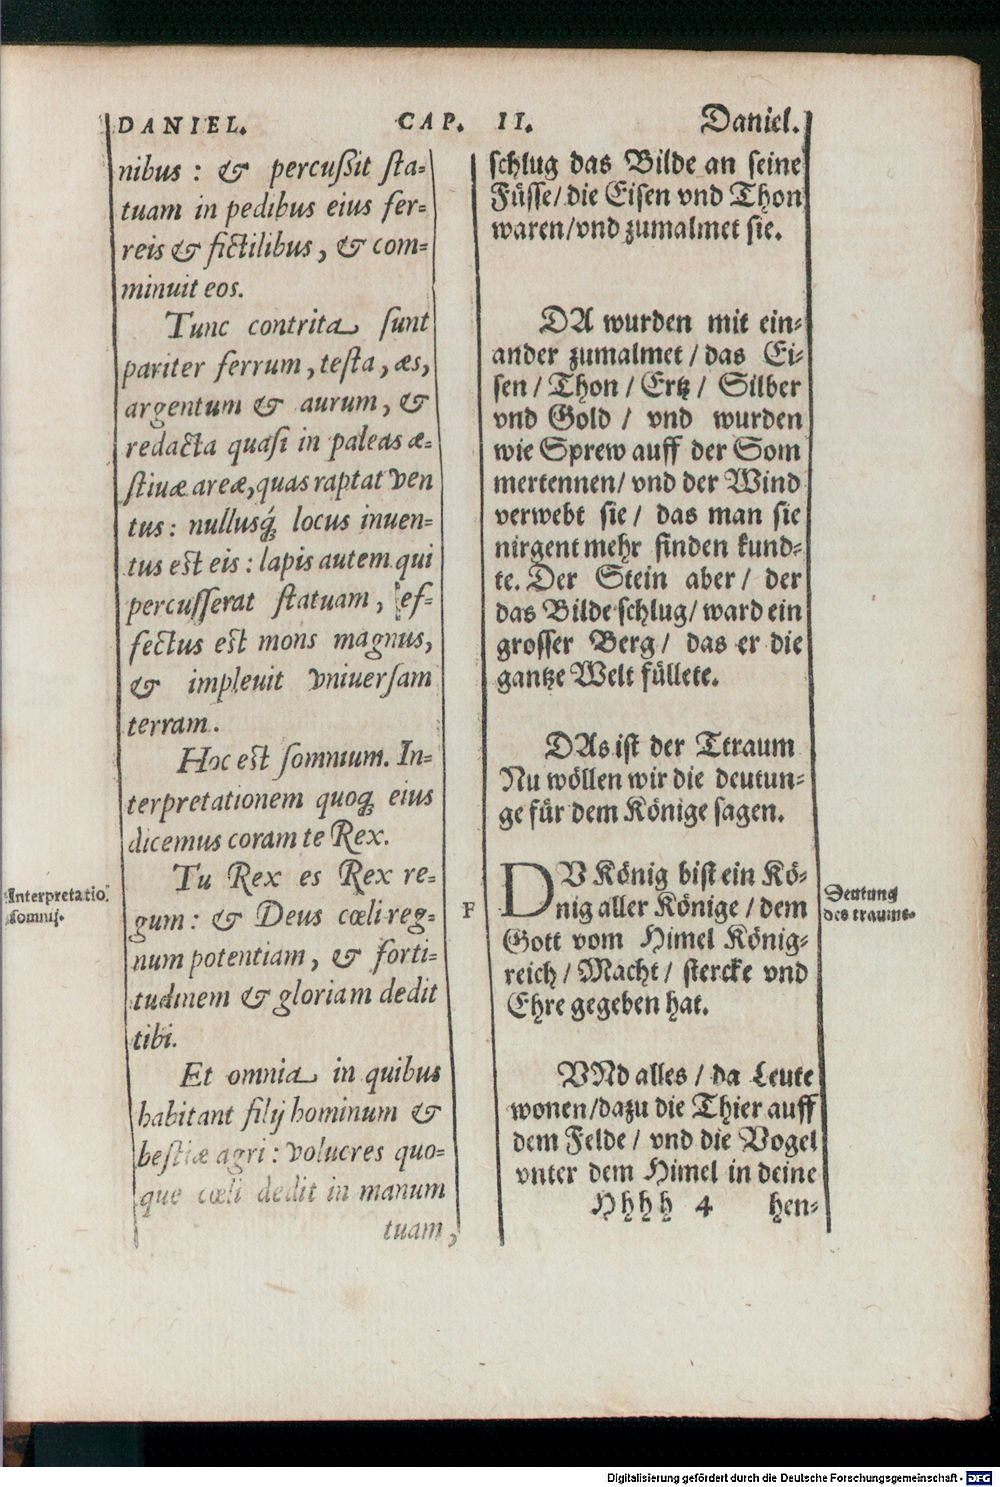 DANIEL. CAP. II. Daniel.
nibus : & percußit sta-
tuam in pedibus eius fer-
reis & fictilibus, & com-
minuit eos.
Tunc contrita sunt
pariter ferrum, testa, æs,
argentum & aurum, &
redacta quasi in paleas æ-
stiuæ areæ, quas raptat ven
tus: nullusq́; locus inuen-
tus est eis: lapis autem qui
percusserat statuam, ef-
fectus est mons magnus,
& impleuit vniuersam
terram.
Hoc est somnium. In-
terpretationem quoq; eius
dicemus coram te Rex.
Interpretatio
somnij.
Tu Rex es Rex re-
gum: & Deus cœli reg-
num potentiam, & forti-
tudinem & gloriam dedit
tibi.
Et omnia in quibus
habitant filij hominum &
bestiæ agri: volucres quo-
que cœli dedit in manum
tuam,
schlug das Bilde an seine
Füsse/ die Eisen vnd Thon
waren/vnd zumalmet sie.
DA wurden mit ein-
ander zumalmet/das Ei-
sen/ Thon/ Ertz/ Silber
vnd Gold/ vnd wurden
wie Sprew auff der Som
mertennen/ vnd der Wind
verwebt sie/ das man sie
nirgent mehr finden kund-
te. Der Stein aber/ der
das Bilde schlug/ ward ein
grosser Berg/ das er die
gantze Welt füllete.
DAs ist der Ttraum
Nu wöllen wir die deutun-
ge für dem Könige sagen.
F
DV König bist ein Kö-
nig aller Könige/ dem
Gott vom Himel König-
reich/ Macht/ stercke vnd
Ehre gegeben hat.
Deutung
des traums.
VNd alles/ da Leute
wonen/dazu die Thier auff
dem Felde/ vnd die Vogel
vnter dem Himel in deine
Hhhh 4 hen-
Digitalisierung gefördert durch die Deutsche Forschungsgemeinschaft - DFG